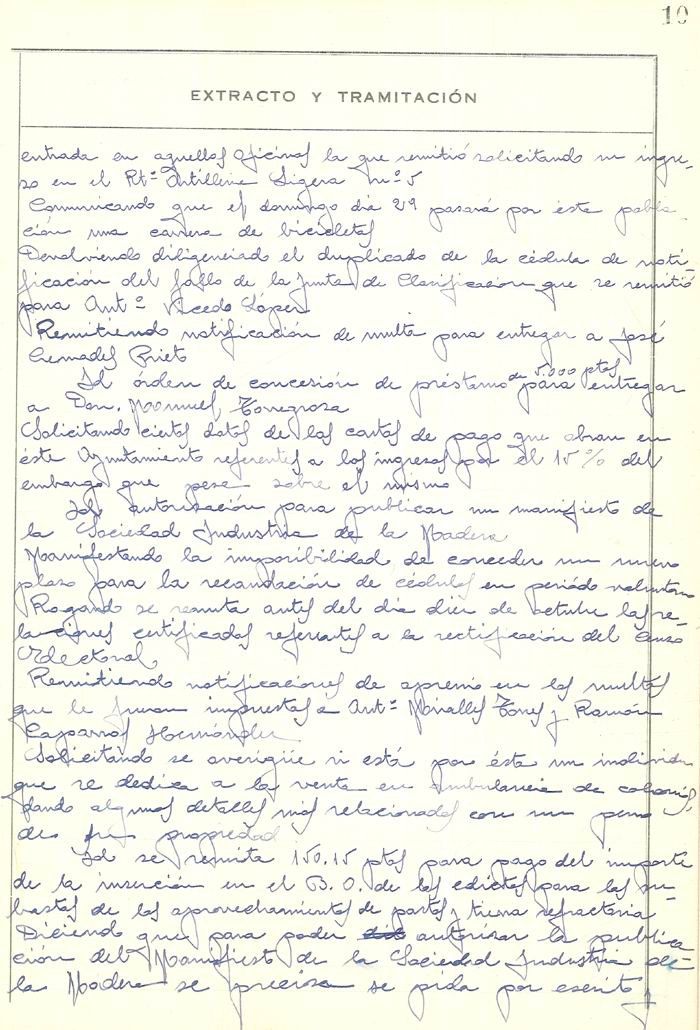 10
EXTRACTO Y TRAMITACIÓN
entrada en aquellas oficinas la que remitió solicitando su ingre-
so en el Rtº Artilleria Ligera nº 5
Comunicando que el domingo dia 29 pasará por ésta pobla-
ción una carrera de bicicletas
Devolviendo diligenciado el duplicado de la cédula de noti-
ficación del fallo de la Junta de Clasificación que se remitió
para Antº Vicedo López
Remitiendo notificación de multa para entregar a José
Bernades Prieto
Id órden de concesión de préstamo de 5.000 ptas para entregar
a Don. Manuel Torregrosa
Solicitando ciertos datos de las cartas de pago que obran en
éste Ayuntamiento referentes a los ingresos por el 15% del
embargo que pesa sobre el mismo
Id. autorización para publicar un manifiesto de
la Sociedad Industria de la Madera
Manifestando la imposibilidad de conceder un nuevo
plazo para la recaudación de cédulas en periódo voluntario
Rogando se remita antes del dia diez de octubre las re-
laciones certificadas referentes a la rectificación del Censo
Electoral
Remitiendo notificaciones de apremio en las multas
que le fueron impuestas a Antº Miralles Torres y Ramón
Caparros Hernández
Solicitando se averigüe si está por ésta un individuo
que se dedica a la venta en ambulancia de colonias,
dando algunos detalles más relacionados con un perro
de su propiedad
Id se remita 150.15 ptas para pago del importe
de la inserción en el B. O. de los edictos para las su-
bastas de los aprovechamientos de pastos y tierra refractaria
Diciendo que para poder autorizar la publica
ción del Manifiesto de la Sociedad Industria de
la Madera se precisa se pida por escrito y